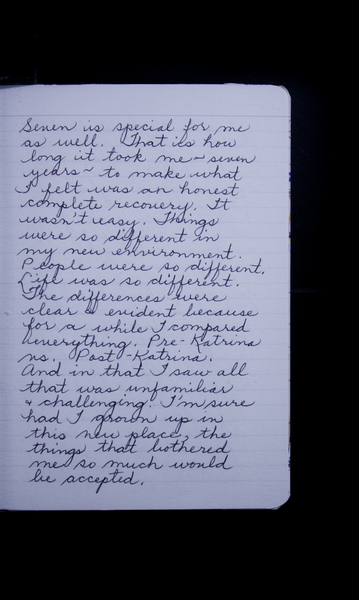 Seven is special for me
as well. That is how
long it took me ~ seven
years ~ to make what
I felt was an honest
complete recovery. It
wasn't easy. Things
were so different in
my new environment.
People were so different.
Life was so different.
The differences were
clear & evident because
for a while I compared
everything. Pre-Katrina
vs. Post-Katrina.
And in that I saw all
that was unfamiliar
& challenging. I'm sure
had I grown up in
this new place, the
things that bothered
me so much would
be accepted.